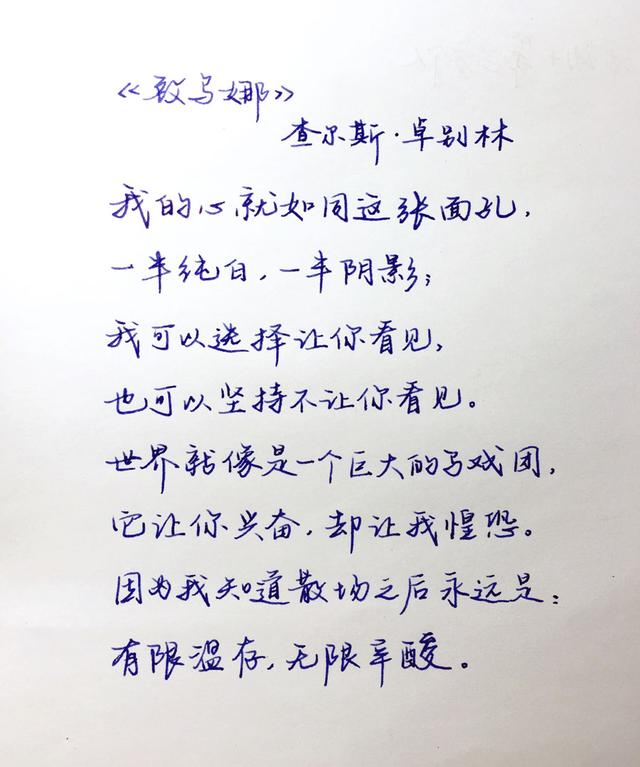 《致乌娜》
查尔斯·卓别林
我的心就如同这张面孔，
一半纯白，一半阴影；
我可以选择让你看见，
也可以坚持不让你看见。
世界就像是一个巨大的马戏团，
它让你兴奋，却让我惶恐。
因为我知道散场之后永远是：
有限温存，无限辛酸。